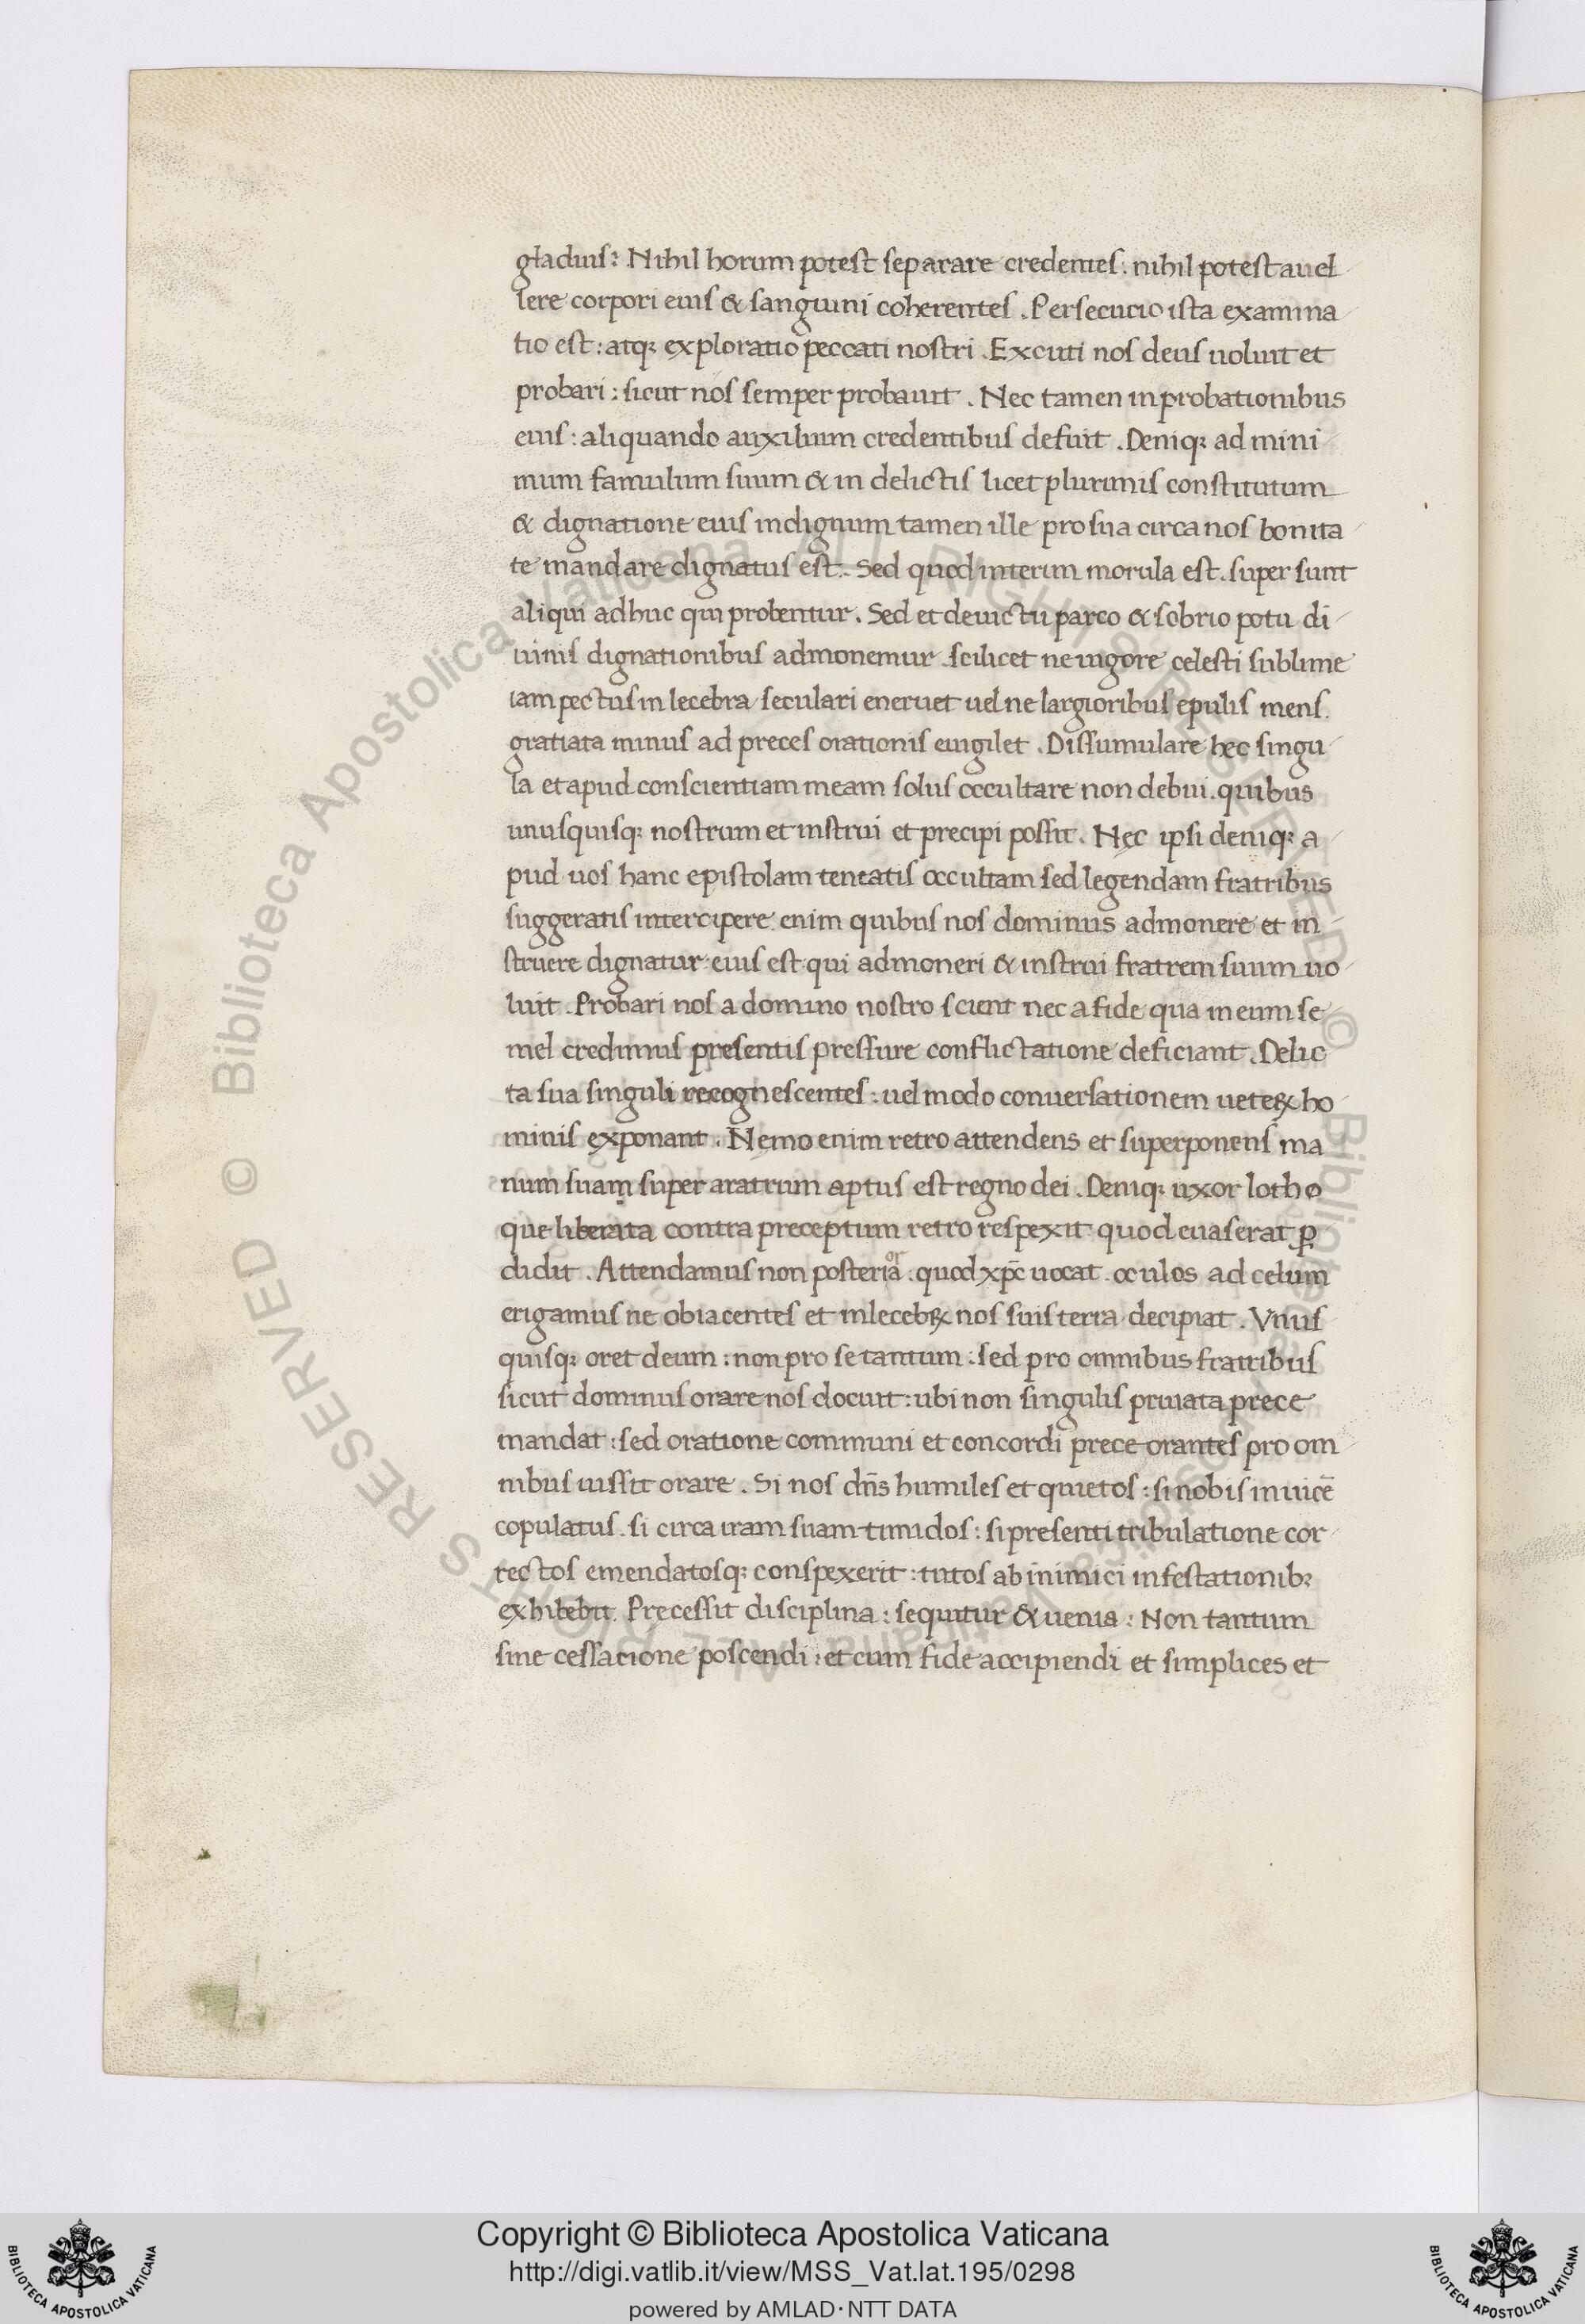 gladius? Nihil horum potest separare credentes: nihil potest auel
lere corpori eius & sanguini coherentes. Persecucio ista examina
tio est: atq; exploratio peccati nostri. Excuti nos deus uoluit et
probari: sicut nos semper probauit. Nec tamen in probationibus
eius: aliquando auxilium credentibus defuit. Deniq; ad mini
mum famulum suum & in delictis licet plurimis constitutum
& dignatione eius indignum tamen ille pro sua circa nos bonita
te mandare dignatus est. Sed quod interim morula est. super sunt
aliqui adhuc qui probentur. Sed et de uictu parco & sobrio potu di
uinis dignationibus admonemur. scilicet ne uigore celesti sublime
iam pectus inlecebra seculari eneruet uel ne largioribus epulis mens.
gratiata minus ad preces orationis euigilet. Dissumulare hec singu
la et apud conscientiam meam solus occultare non debui. quibus
unusquisq; nostrum et instrui et precipi possit. Nec ipsi deniq; a
pud uos hanc epistolam teneatis occultam sed legendam fratribus
suggeratis intercipere enim quibus nos dominus admonere et in
struere dignatur eius est qui admoneri & instrui fratrem suum uo
luit. Probari nos a domino nostro scient nec a fide qua in eum se
mel credimus presentis pressure conflictatione deficiant. Delic
ta sua singuli recognescentes: uel modo conuersationem ueteꝝ ho
minis exponant. Nemo enim retro attendens et superponens ma
num suam super aratrum aptus est regno dei. Deniq; uxor loth o
que liberata contra preceptum retro respexit quod euaserat ꝑ
didit. Attendamus non posteriora. quod xp̄c uocat. oculos ad celum
erigamus ne obiacentes et inlecebꝝ nos suis terra decipiat. Vnus
quisq; oret deum: non pro se tantum: sed pro omnibus fratribus
sicut dominus orare nos docuit: ubi non singulis priuata prece
mandat: sed oratione communi et concordi prece orantes pro om
nibus iussit orare. Si nos dn̄s humiles et quietos: si nobis inuicē
copulatus. si circa iram suam timidos: si presenti tribulatione cor
rectos emendatosq; conspexerit: tutos ab inimici infestationib;
exhibebit. Precessit disciplina: sequitur & uenia: Non tantum
sine cessatione poscendi: et cum fide accipiendi et simplices et
© Biblioteca Apostolica Vaticana ALL RIGHTS RESERVED © Biblioteca Apostolica Vaticana ALL RIGHTS RESERVED
Copyright © Biblioteca Apostolica Vaticana
http://digi.vatlib.it/view/MSS_Vat.lat.195/0298
powered by AMLAD·NTT DATA
BIBLIOTECA APOSTOLICA VATICANA
BIBLIOTECA APOSTOLICA VATICANA